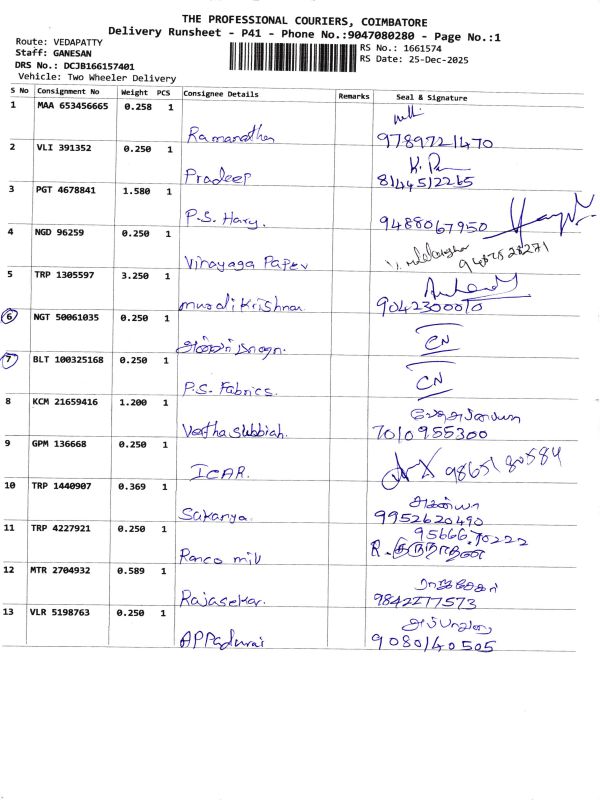 THE PROFESSIONAL COURIERS, COIMBATORE
Delivery Runsheet - P41 - Phone No.:9047080280 - Page No.:1
Route: VEDAPATTY
Staff: GANESAN
DRS No.: DCJB166157401
Vehicle: Two Wheeler Delivery
RS No.: 1661574
RS Date: 25-Dec-2025
S No Consignment No Weight PCS Consignee Details Remarks Seal & Signature
1 MAA 653456665 0.258 1
Ramanathan 9789721470
2 VLI 391352 0.250 1
Pradeep 8144512265
3 PGT 4678841 1.580 1
P.S. Hary. 9488067950
4 NGD 96259 0.250 1
Vinayaga Paper 9487828271
5 TRP 1305597 3.250 1
murali Krishnan 9042300010
6 NGT 50061035 0.250 1
CN
7 BLT 100325168 0.250 1
CN
P.S. Fabrics.
8 KCM 21659416 1.200 1
Vertha Subbiah. 7010955300
9 GPM 136668 0.250 1
ICAR. 9865180584
10 TRP 1440907 0.369 1
Sukanya. 9952620490
11 TRP 4227921 0.250 1
95666.70222
Ranco mill R.
12 MTR 2704932 0.589 1
ராஜசேகர்
Rajasekar. 9842277573
13 VLR 5198763 0.250 1
அப்பாதுரை
APPadurai 9080140505